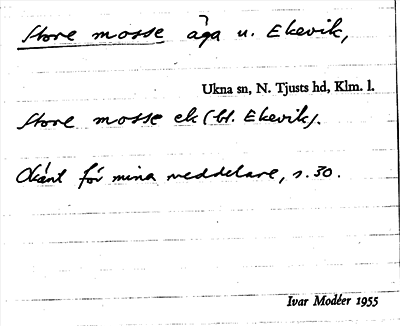 Store mosse äga u. Ekevik,
Ukna sn, N. Tjusts hd, Klm. l.
Store mosse ek (bl. Ekevik).
Okänt för mina meddelare, s. 30.
Ivar Modéer 1955